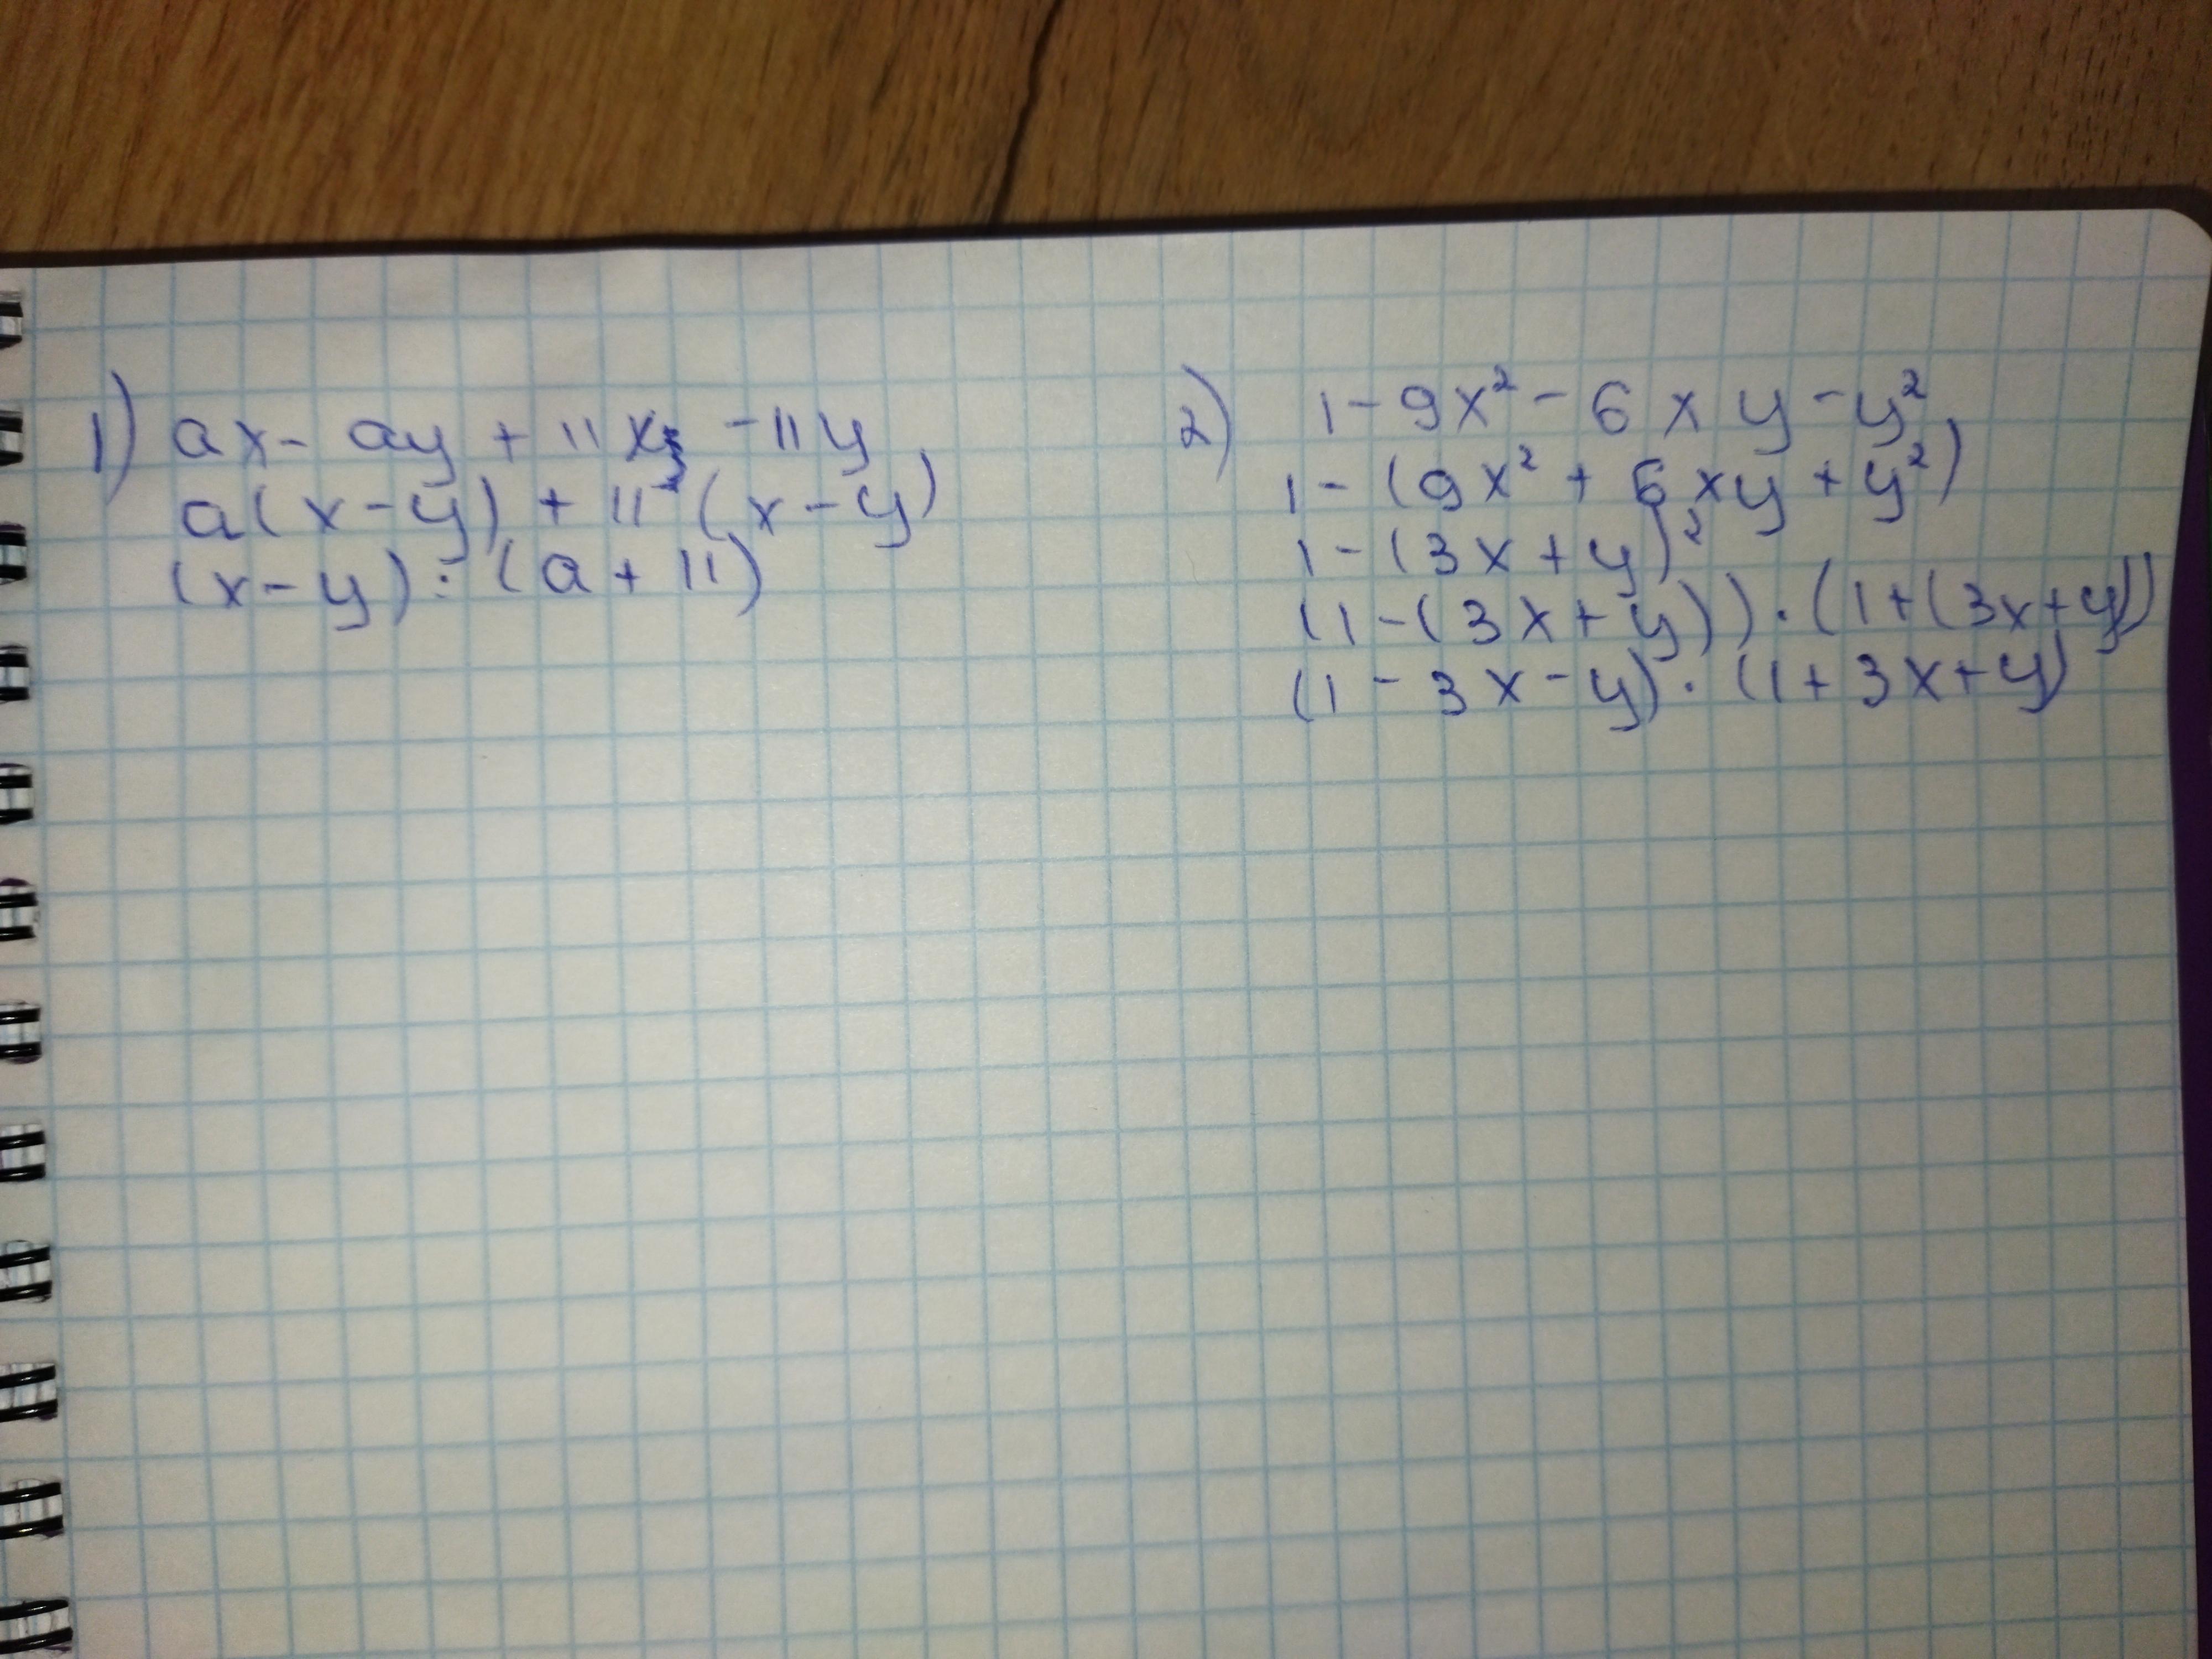 1) ax - ay + 11x - 11y
a(x-y) + 11 (x-y)
(x-y) : (a + 11)
2) 1 - 9x² - 6xy - y²
1 - (9x² + 6xy + y²)
1 - (3x + y)²
(1 - (3x + y)) · (1 + (3x + y))
(1 - 3x - y) · (1 + 3x + y)